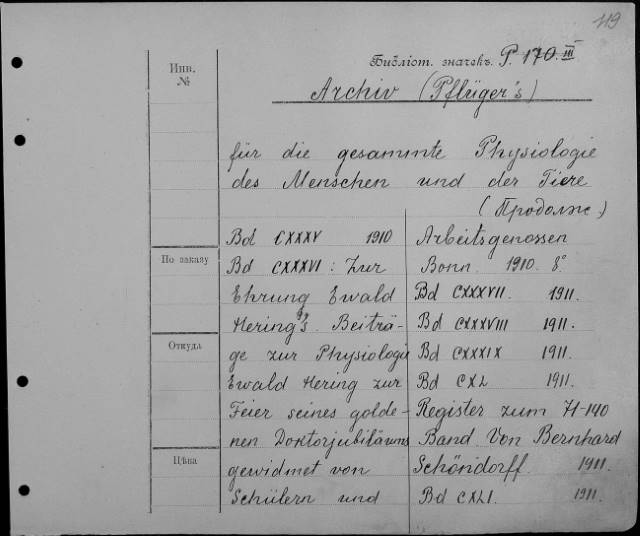 119
Библіот. значекъ. P. 170. III
Инв.
№
Archiv (Pflüger's)
für die gesammte Physiologie
des Menschen und der Tiere
(Продолж)
Bd CXXXV 1910
Bd CXXXVI : Zur
Ehrung Ewald
Hering's. Beiträ-
ge zur Physiologie
Ewald Hering zur
Feier seines golde-
nen Doktorjubiläums
gewidmet von
Schülern und
Arbeitsgenossen
Bonn. 1910. 8°
Bd CXXXVII. 1911.
Bd CXXXVIII 1911.
Bd CXXXIX 1911.
Bd CXL 1911.
Register zum 71-140
Band. Von Bernhard
Schöndorff. 1911.
Bd CXLI. 1911.
По заказу
Откуда
Цѣна